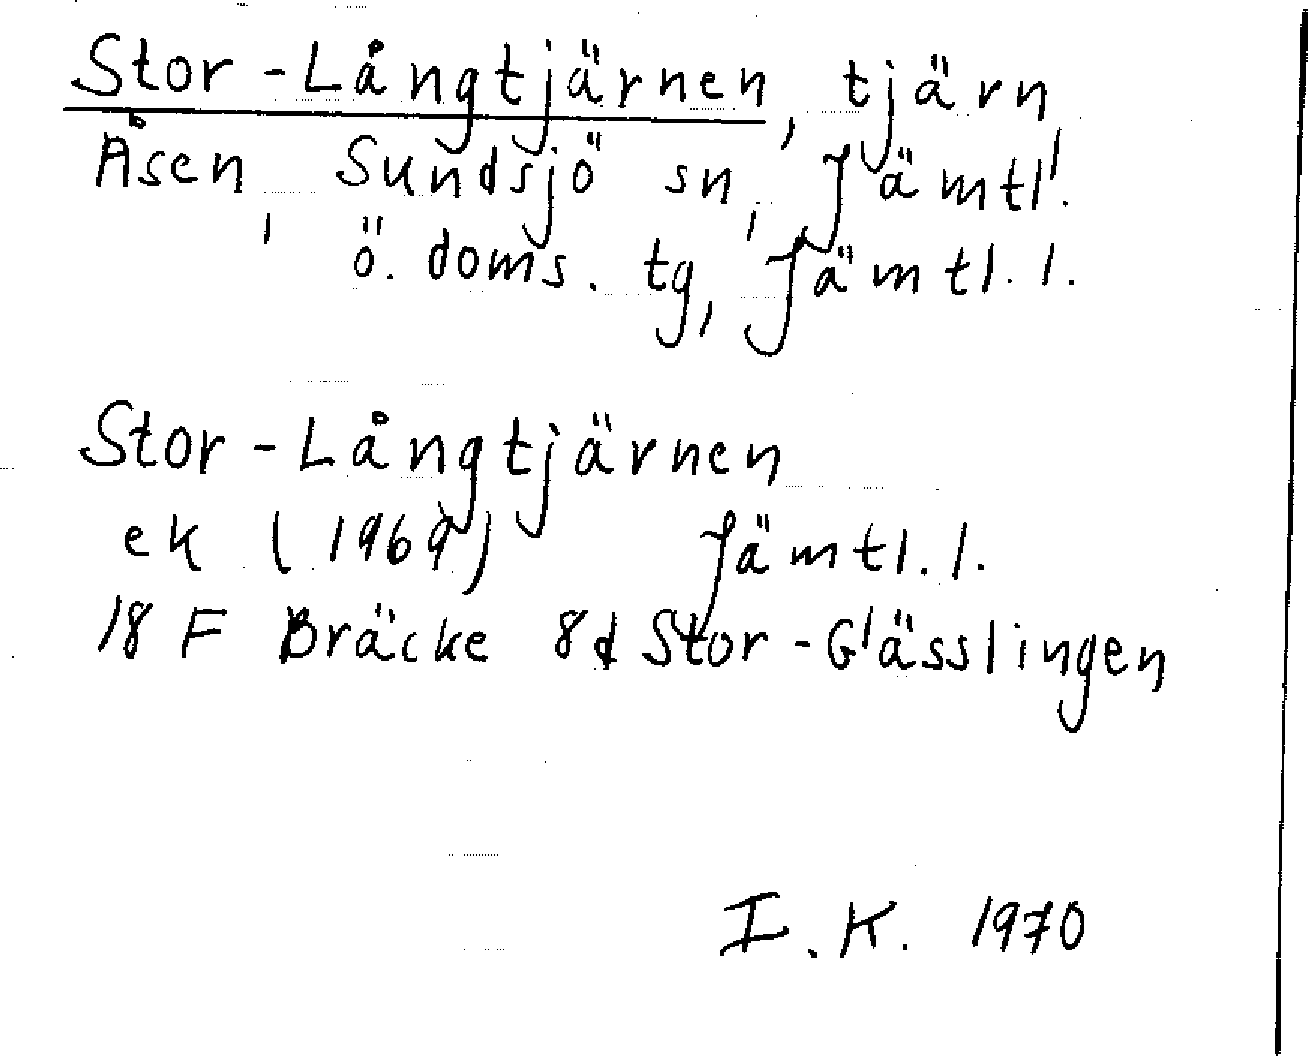 Stor-Långtjärnen, tjärn
Åsen, Sundsjö sn, Jämtl.
ö. doms. tg, Jämtl. l.
Stor-Långtjärnen
ek (1969) Jämtl. l.
18 F Bräcke 8d Stor-Glässlingen
I. K. 1970